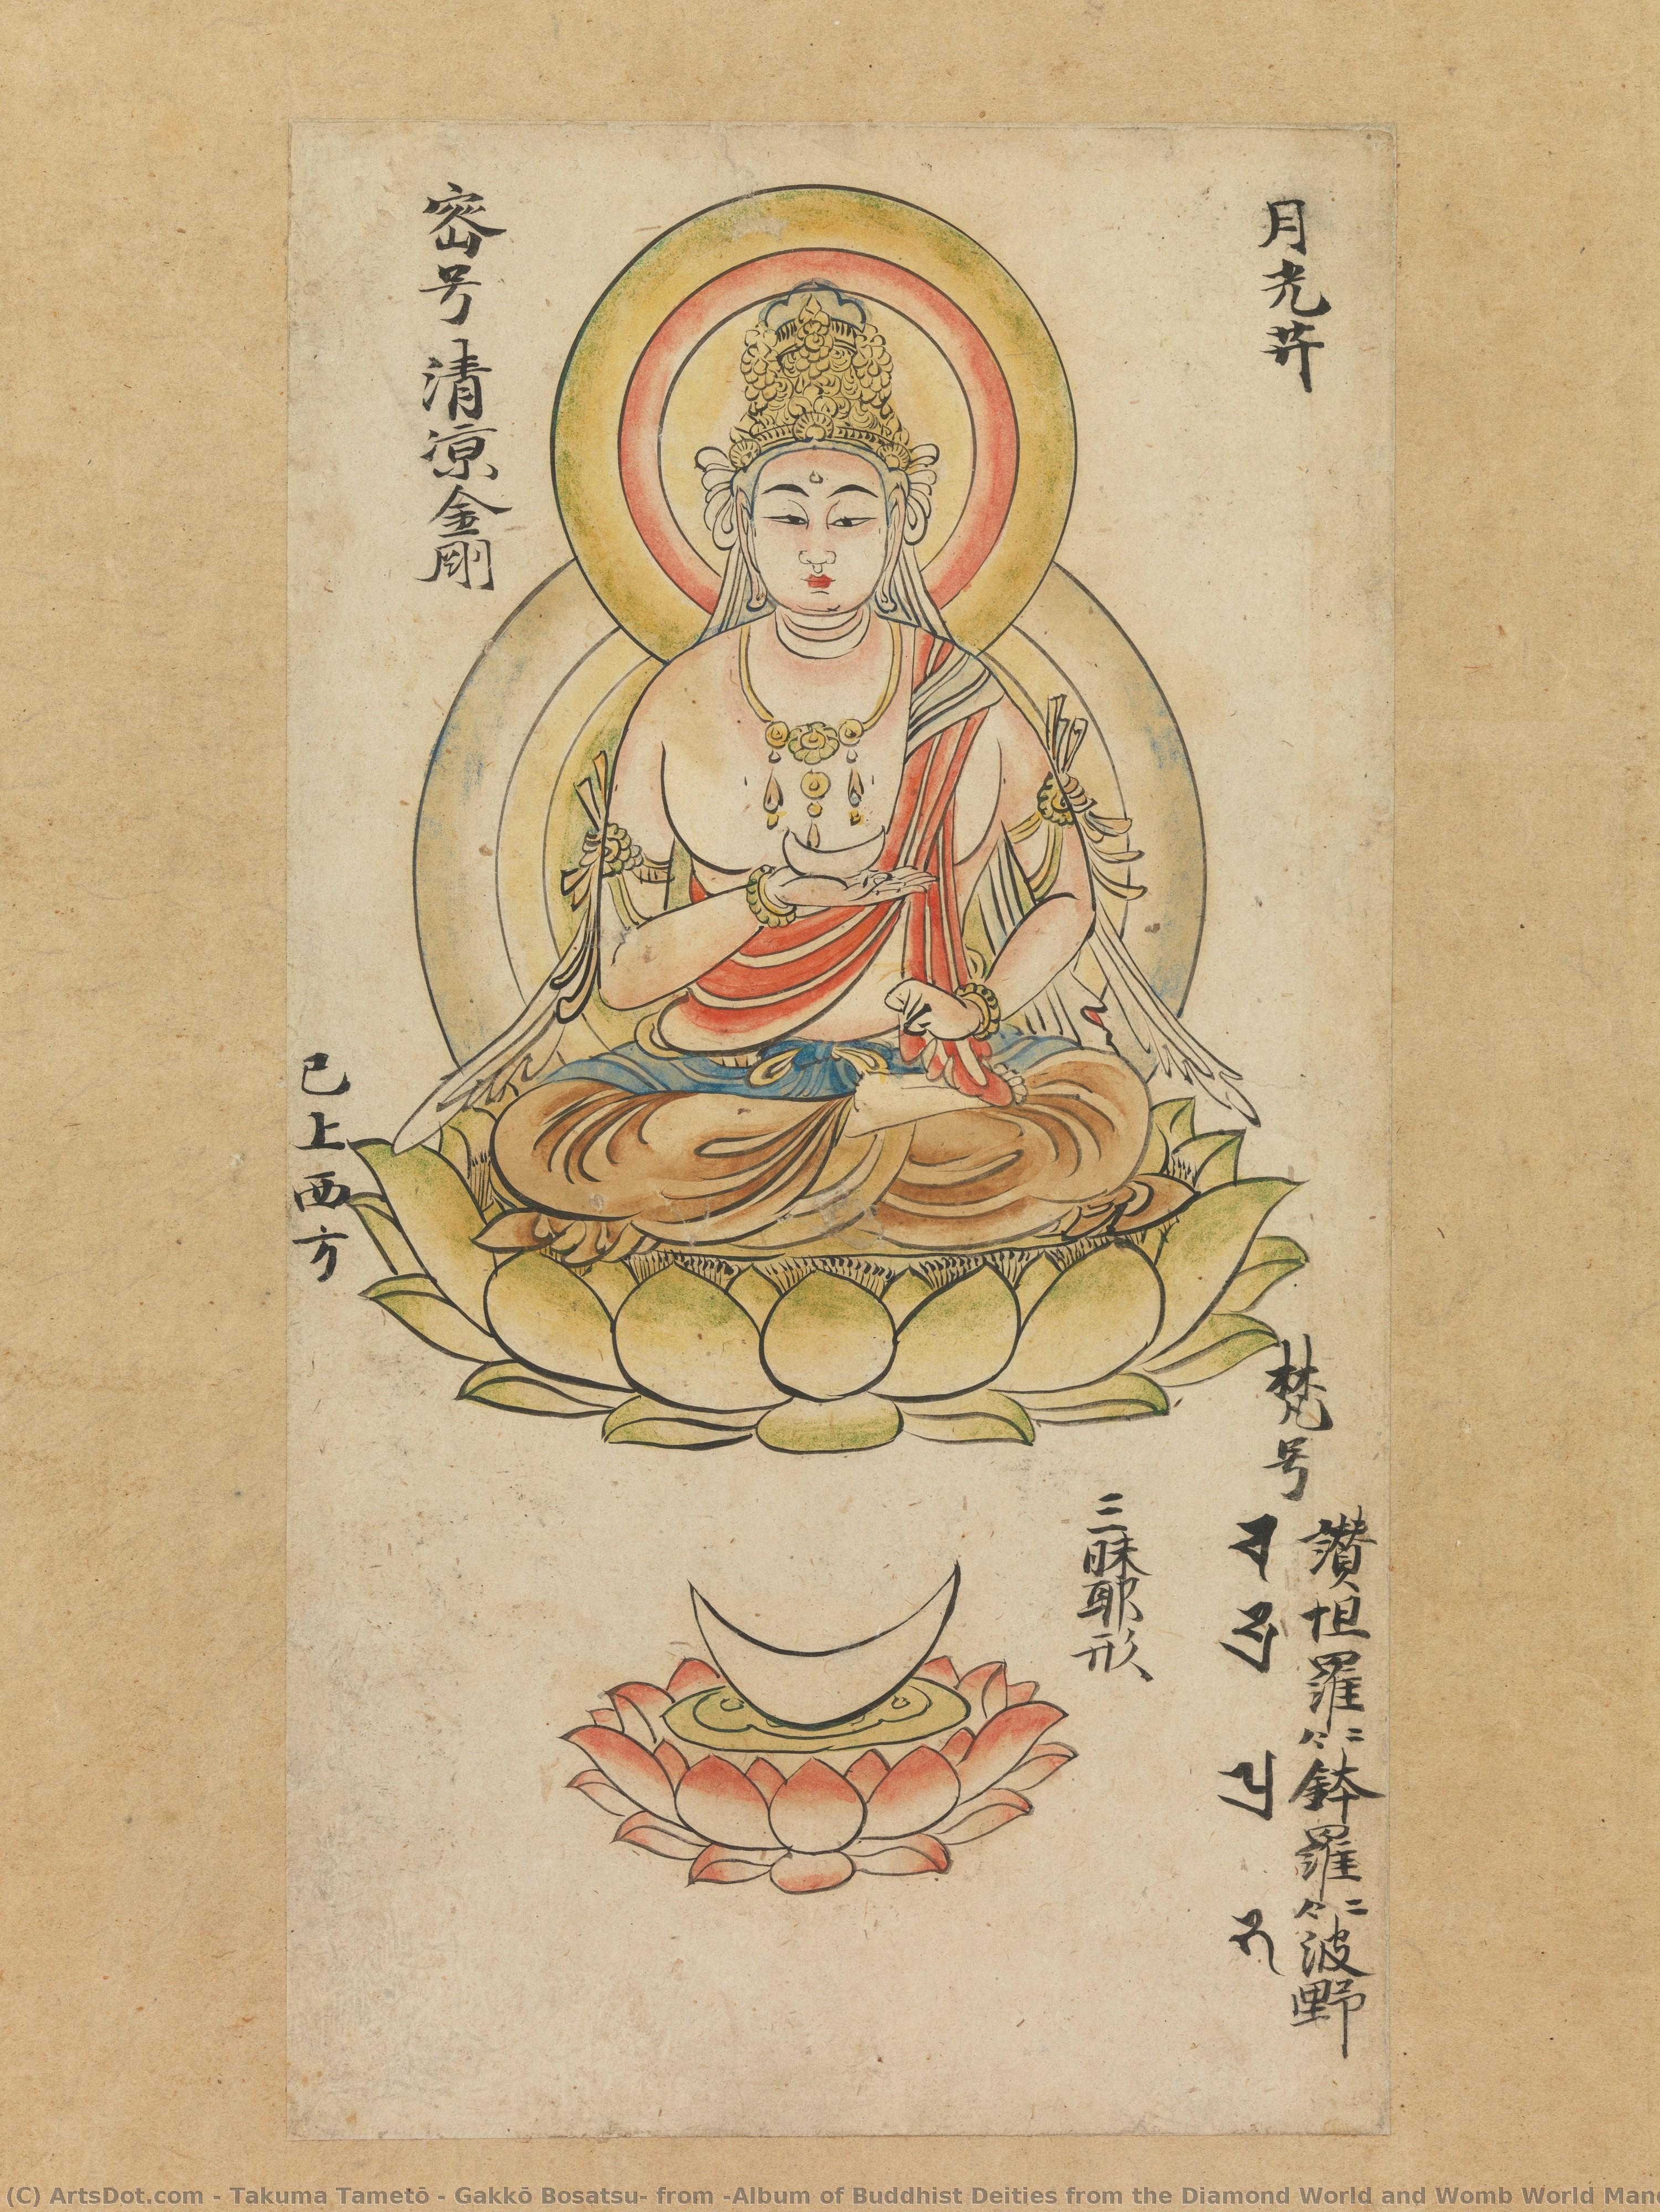 月光𦬇
梵号
讃怛羅二合鉢羅二合波野
三昧耶形
密号 清涼金剛
已上西方
(C) ArtsDot.com - Takuma Tametō - Gakkō Bosatsu- from -Album of Buddhist Deities from the Diamond World and Womb World Mand